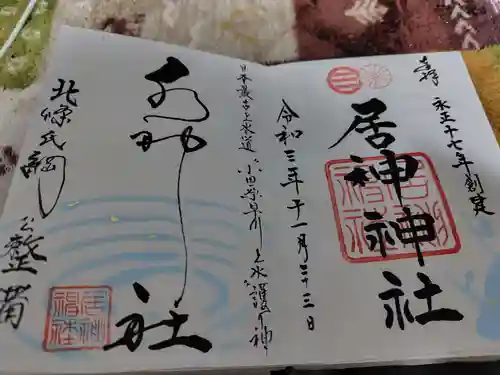 奉拝
永正十七年創建
居神神社
令和三年十一月二十三日
日本最古上水道
小田原早川上水護り神
水神社
北條氏綱公整備
居神神社